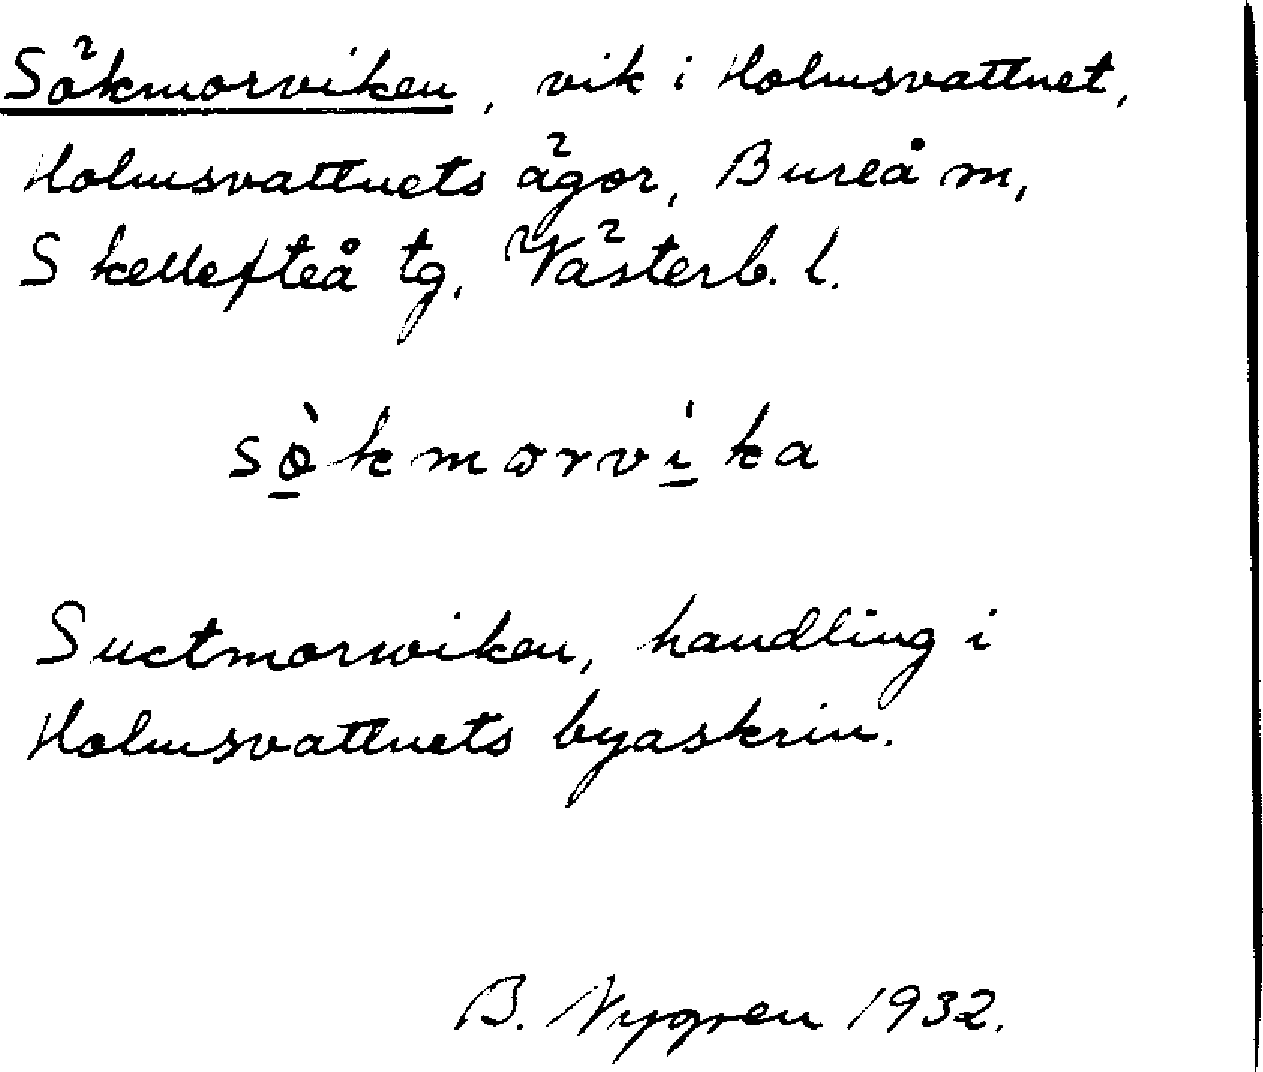 Sökmorviken, vik i Holmsvattnet,
Holmsvattnets ägor, Bureå m,
Skellefteå tg, Västerb. l.
sö̲̀kmorvi̲ka
Suctmorwiken, handling i
Holmsvattnets byaskrin.
B. Nygren 1932.